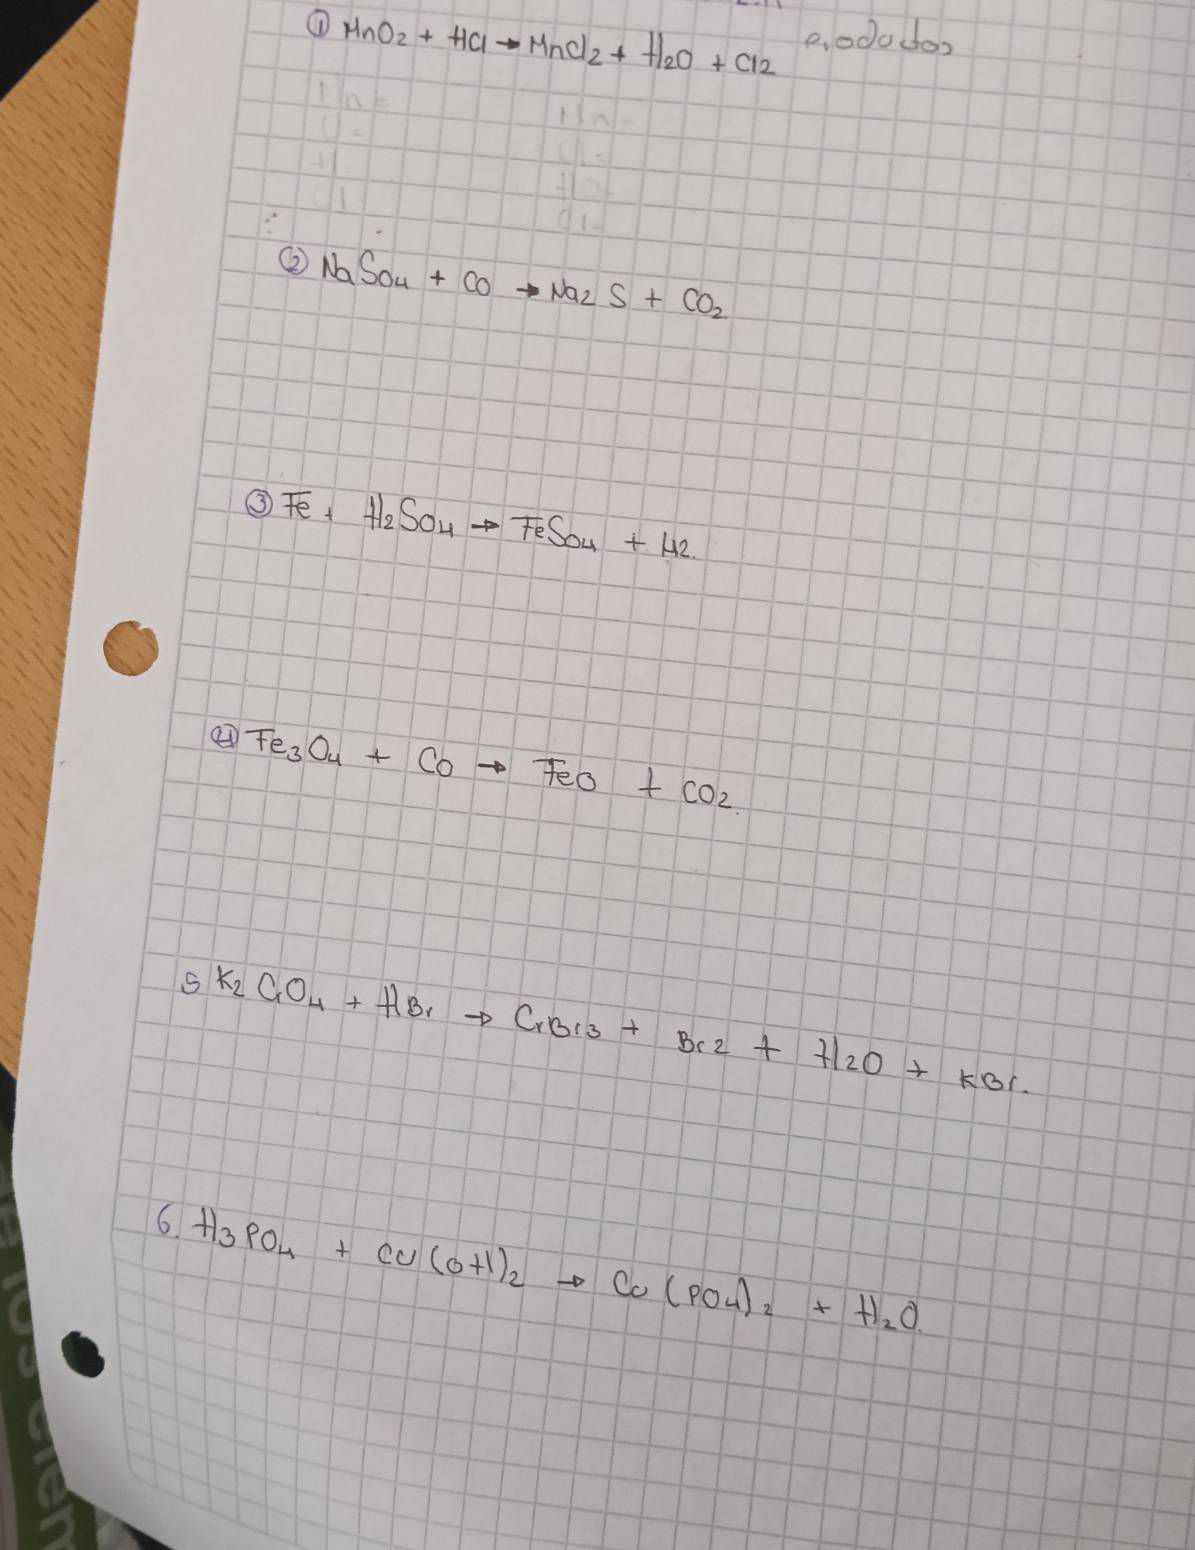 ① MnO2 + HCl → MnCl2 + H2O + Cl2
Mn =
Mn =
② NaSO4 + CO → Na2 S + CO2
③ Fe + H2SO4 → FeSO4 + H2.
④ Fe3O4 + CO → FeO + CO2.
5 K2 CrO4 + HBr → CrBr3 + Br2 + H2O + KBr.
6. H3PO4 + Cu(OH)2 → Cu (PO4)2 + H2O.